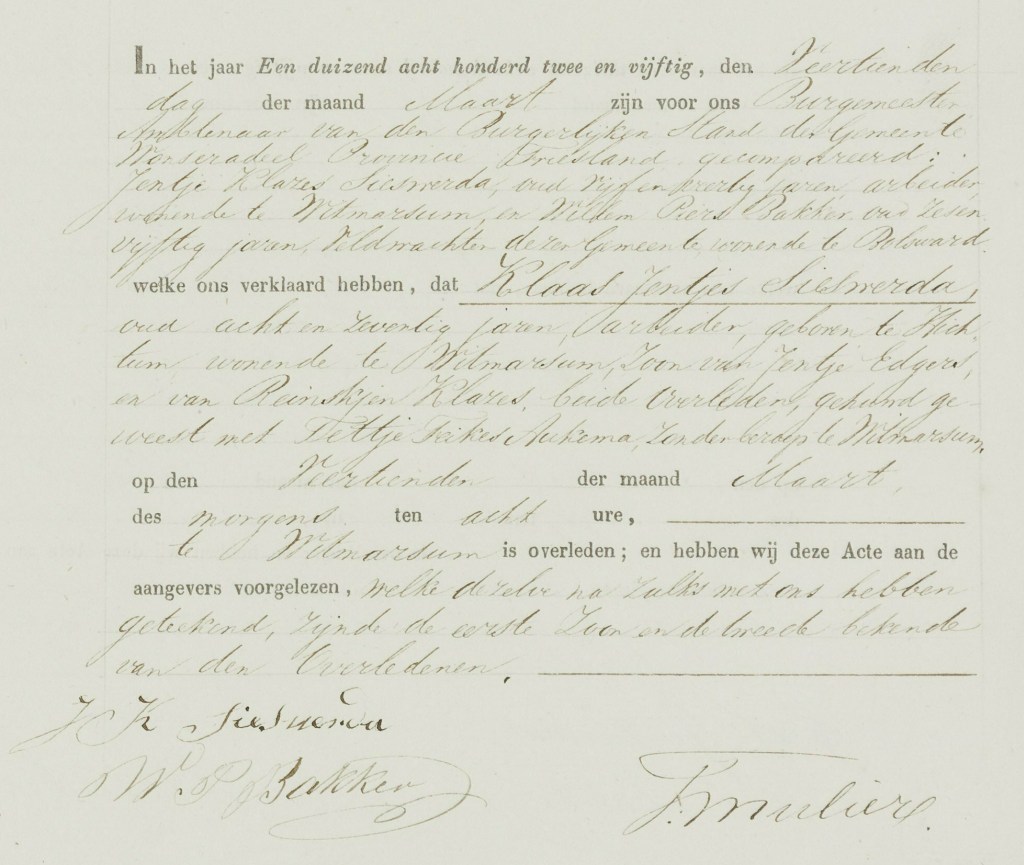 In het jaar Een duizend acht honderd twee en vijftig, den Veertienden
dag der maand Maart zijn voor ons Burgemeester
Ambtenaar van den Burgerlijken Stand der Gemeente
Wonseradeel Provincie Friesland gecompareerd:
Jentje Klazes Sieswerda, oud vijf en veertig jaren, arbeider,
wonende te Witmarsum, en Willem Piers Bakker oud zes en
vijftig jaren, Veldwachter dezer Gemeente, wonende te Bolsward.
welke ons verklaard hebben, dat Klaas Jentjes Sieswerda,
oud acht en zeventig jaren, arbeider, geboren te Hich-
tum wonende te Witmarsum, Zoon van Jentje Edgers,
en van Reinskjen Klazes, beide Overleden, gehuwd ge-
weest met Tettje Feikes Aukema, zonder beroep te Witmarsum,
op den Veertienden der maand Maart,
des morgens ten acht ure,
te Witmarsum is overleden; en hebben wij deze Acte aan de
aangevers voorgelezen, welke dezelve na zulks met ons hebben
geteekend, zijnde de eerste Zoon en de tweede bekende
van den Overledenen.
J K Sieswerda
W. P Bakker